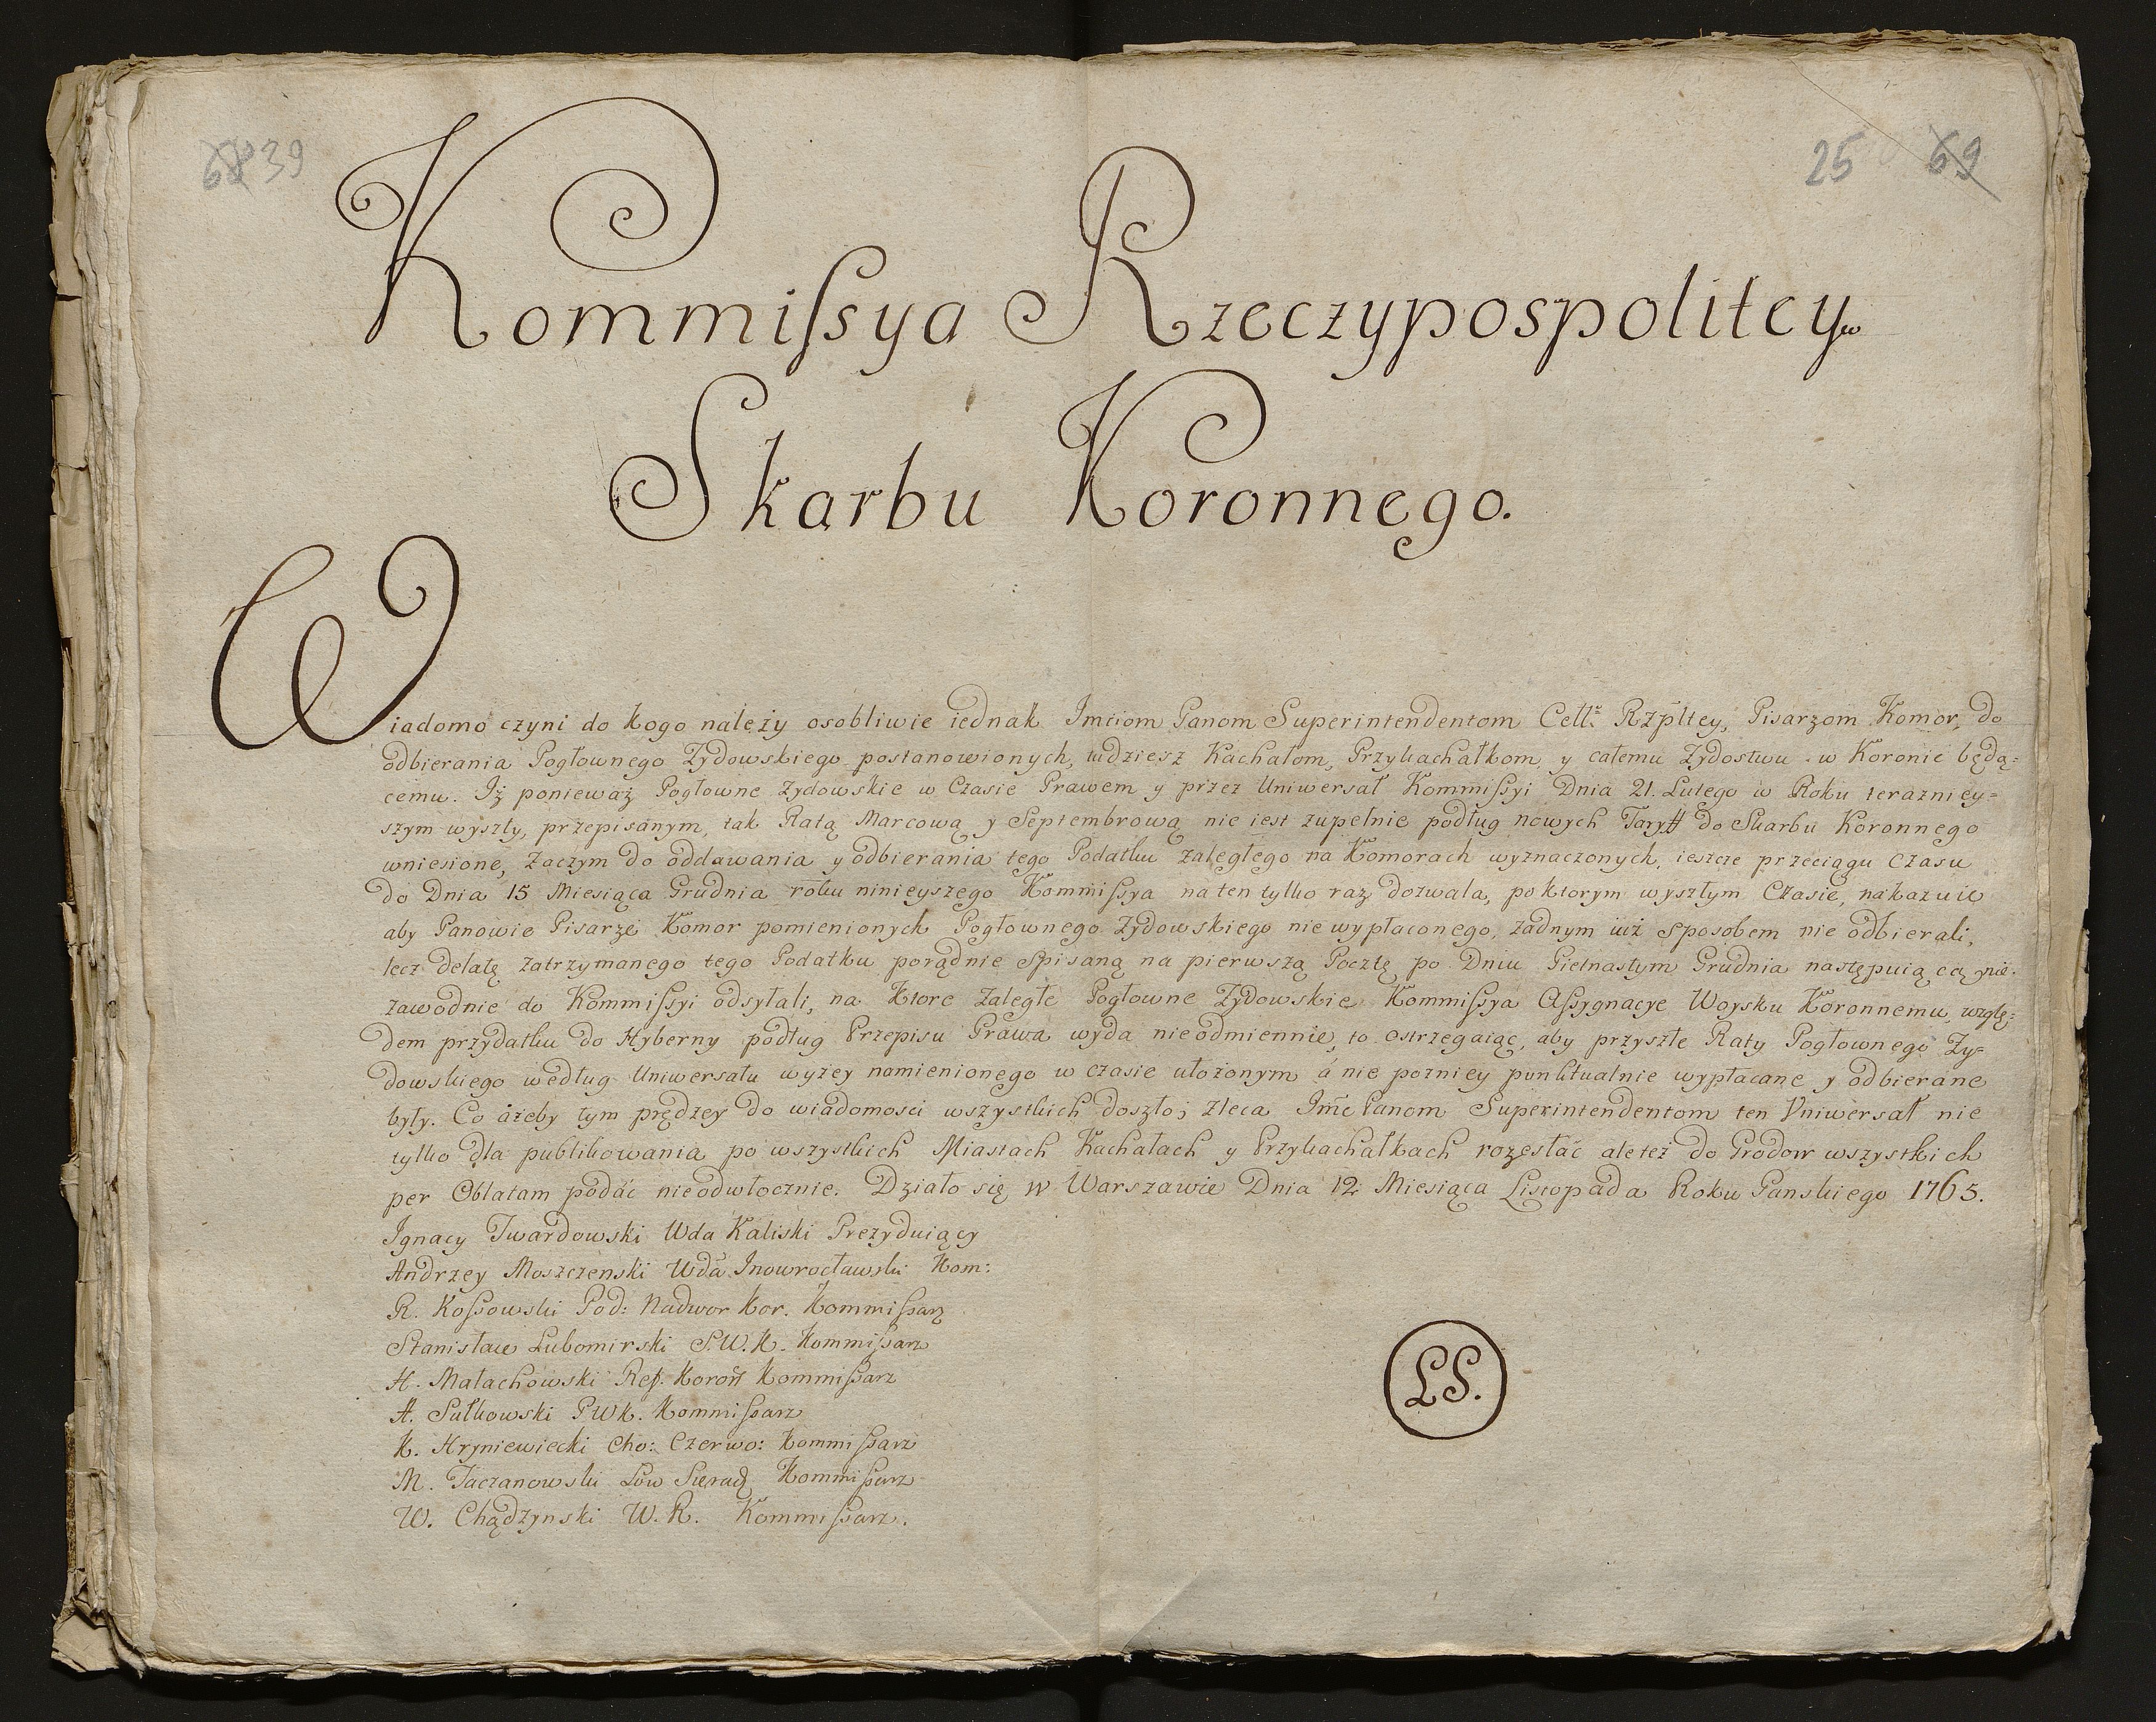 68 39
25 69
Kommissya Rzeczypospolitey
Skarbu Koronnego.
Wiadomo czyni do kogo należy osobliwie iednak Imciom Panom Superintendentom Cell: Rzpltey, Pisarzom Komor, do
odbierania Pogłownego Zydowskiego postanowionych, tudziesz Kachałom, Przykachałkom y całemu Zydostwu w Koronie będą=
cemu. Iż ponieważ Pogłowne Zydowskie w Czasie Prawem y przez Uniwersał Kommissyi Dnia 21. Lutego w Roku terazniey=
szym wyszły, przepisanym, tak Ratą Marcową y Septembrową nie iest zupełnie podług nowych Taryff do Skarbu Koronnego
wniesione, zaczym do oddawania y odbierania tego Podatku zaległego na Komorach wyznaczonych, ieszcze przeciągu czasu
do Dnia 15 Miesiąca Grudnia roku ninieyszego Kommissya na ten tylko raz dozwala, po ktorym wyszłym Czasie, nakazuie
aby Panowie Pisarze Komor pomienionych Pogłownego Zydowskiego nie wypłaconego, żadnym iuż sposobem nie odbierali,
lecz delatę zatrzymanego tego Podatku porądnie spisaną na pierwszą Pocztę po Dniu Pietnastym Grudnia następuiącą nie=
zawodnie do Kommissyi odsyłali, na ktore zaległe Pogłowne Zydowskie Kommissya Assygnacye Woysku Koronnemu, wzglę=
dem przydatku do Hyberny podług Przepisu Prawa wyda nieodmiennie, to ostrzegaiąc, aby przyszłe Raty Pogłownego Zy=
dowskiego według Uniwersału wyżey namienionego w czasie ułożonym á nie pozniey punktualnie wypłacane y odbierane
były. Co ażeby tym prędzey do wiadomosci wszystkich doszło; zleca Imc Panom Superintendentom ten Uniwersał nie
tylko dla publikowania po wszystkich Miastach Kachałach y Przykachałkach rozesłać ale też do Grodow wszystkich
per Oblatam podać nieodwłocznie. Działo się w Warszawie Dnia 12 Miesiąca Listopada Roku Panskiego 1765.
Ignacy Twardowski Wda Kaliski Prezyduiący
Andrzey Moszczenski Wda Inowrocławski Kom:
R. Kossowski Pod: Nadwor Kor. Kommissarz
Stanisław Lubomirski S.W.K. Kommissarz
H. Małachowski Ref. Koroñ Kommissarz
A. Sułkowski P W K. Kommissarz
K. Hryniewiecki Cho: Czerwo: Kommissarz
M. Taczanowski Łow Sieradz Kommissarz
W. Chądzynski W. R. Kommissarz.
LS.